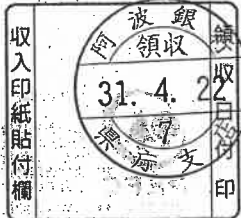 収入印紙貼付欄
阿波銀
領収
31. 4. 22
7
支
領収日
印